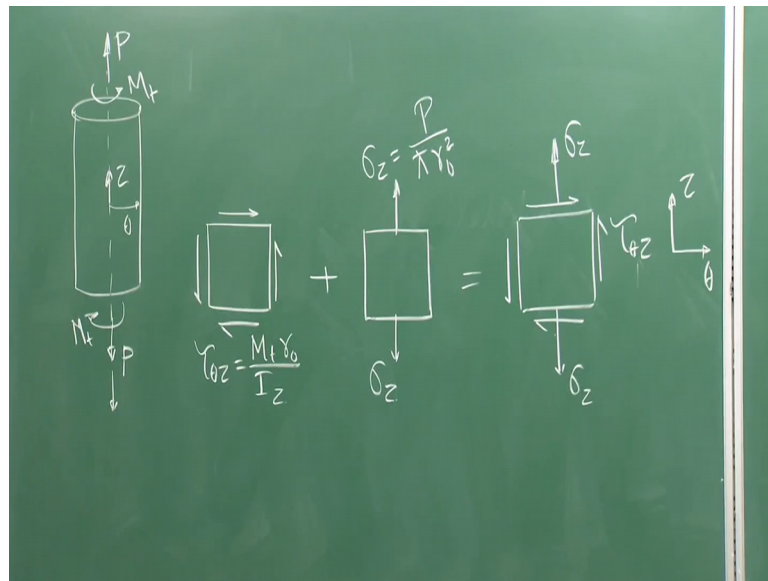 P
M_t
z
θ
M_t
P
τ_θz = M_t r_0 / I_z
+
σ_z = P / πr_0^2
σ_z
=
σ_z
τ_θz
σ_z
z
θ